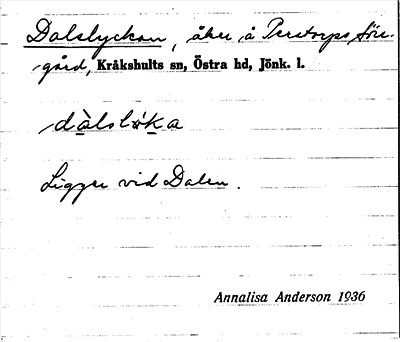 Dalslyckan, åker å Perstorps före-
gård, Kråkshults sn, Östra hd, Jönk. l.
Ligger vid Dalen.
Annalisa Anderson 1936